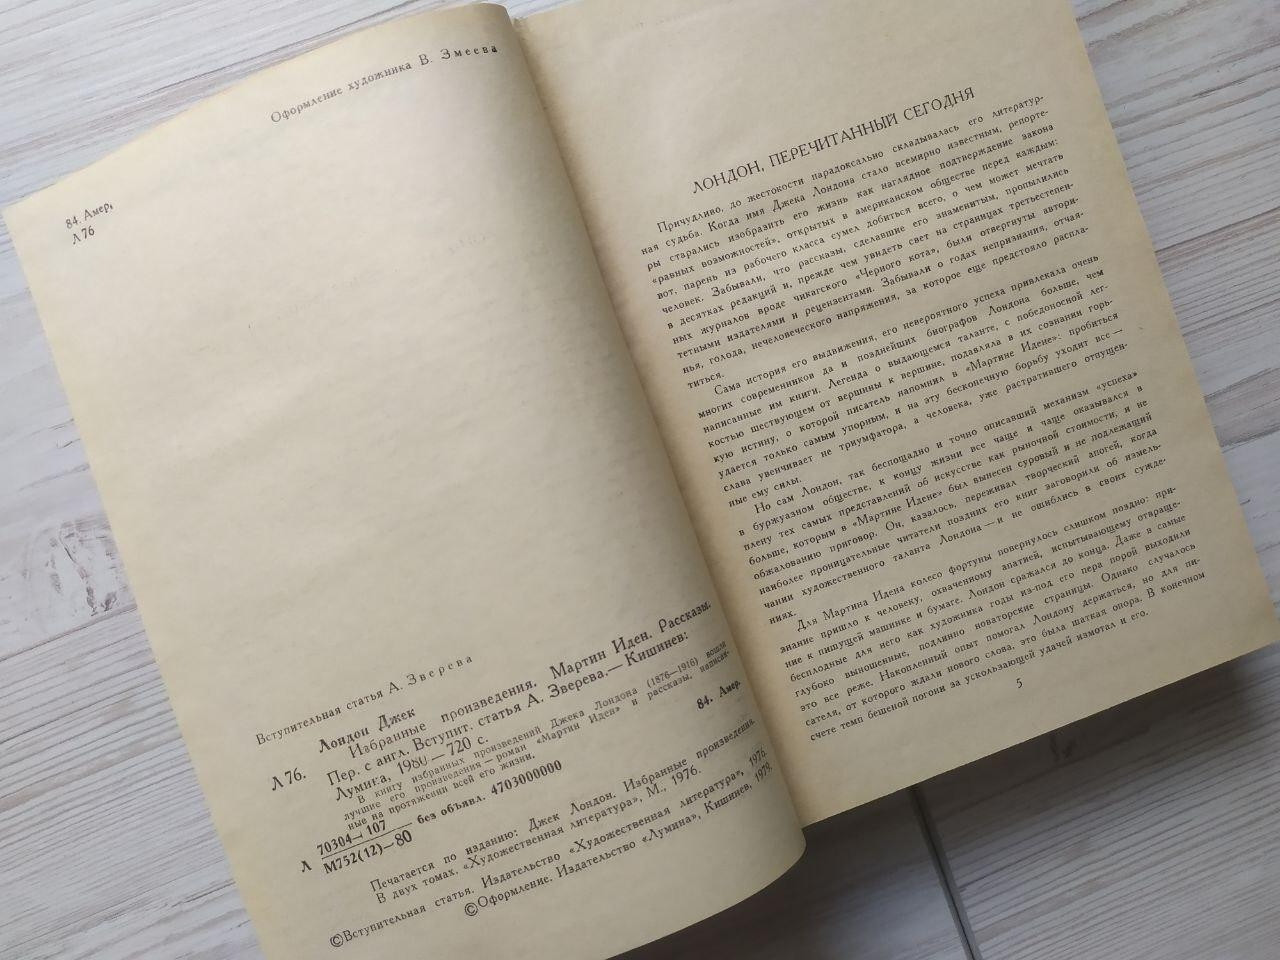 Оформление художника В. Змеева
84. Амер.
Л 76
Вступительная статья А. Зверева
Лондон Джек
Л 76. Избранные произведения. Мартин Иден. Рассказы.
Пер. с англ. Вступит. статья А. Зверева.— Кишинев:
Лумина, 1980—720 с.
В книгу избранных произведений Джека Лондона (1876—1916) вошли
лучшие его произведения — роман «Мартин Иден» и рассказы, написан-
ные на протяжении всей его жизни.
84. Амер.
Л 70304—107
М752(12)—80 без объявл. 4703000000
Печатается по изданию: Джек Лондон. Избранные произведения.
В двух томах. «Художественная литература», М., 1976.
©Вступительная статья. Издательство «Художественная литература», 1976.
©Оформление. Издательство «Лумина», Кишинев, 1979.
ЛОНДОН, ПЕРЕЧИТАННЫЙ СЕГОДНЯ
Причудливо, до жестокости парадоксально складывалась его литератур-
ная судьба. Когда имя Джека Лондона стало всемирно известным, репорте-
ры старались изобразить его жизнь как наглядное подтверждение закона
«равных возможностей», открытых в американском обществе перед каждым:
вот, парень из рабочего класса сумел добиться всего, о чем может мечтать
человек. Забывали, что рассказы, сделавшие его знаменитым, пропылились
в десятках редакций и, прежде чем увидеть свет на страницах третьестепен-
ных журналов вроде чикагского «Черного кота», были отвергнуты автори-
тетными издателями и рецензентами. Забывали о годах непризнания, отчая-
нья, голода, нечеловеческого напряжения, за которое еще предстояло распла-
титься.
Сама история его выдвижения, его невероятного успеха привлекала очень
многих современников да и позднейших биографов Лондона больше, чем
написанные им книги. Легенда о выдающемся таланте, с победоносной лег-
костью шествующем от вершины к вершине, подавляла в их сознании горь-
кую истину, о которой писатель напомнил в «Мартине Идене»: пробиться
удается только самым упорным, и на эту бесконечную борьбу уходит все —
слава увенчивает не триумфатора, а человека, уже растратившего отпущен-
ные ему силы.
Но сам Лондон, так беспощадно и точно описавший механизм «успеха»
в буржуазном обществе, к концу жизни все чаще и чаще оказывался в
плену тех самых представлений об искусстве как рыночной стоимости, и не
больше, которым в «Мартине Идене» был вынесен суровый и не подлежащий
обжалованию приговор. Он, казалось, переживал творческий апогей, когда
наиболее проницательные читатели поздних его книг заговорили об измель-
чании художественного таланта Лондона — и не ошиблись в своих сужде-
ниях.
Для Мартина Идена колесо фортуны повернулось слишком поздно: при-
знание пришло к человеку, охваченному апатией, испытывающему отвраще-
ние к пишущей машинке и бумаге. Лондон сражался до конца. Даже в самые
бесплодные для него как художника годы из-под его пера порой выходили
глубоко выношенные, подлинно новаторские страницы. Однако случалось
это все реже. Накопленный опыт помогал Лондону держаться, но для пи-
сателя, от которого ждали нового слова, это была шаткая опора. В конечном
счете темп бешеной погони за ускользающей удачей измотал и его.
5